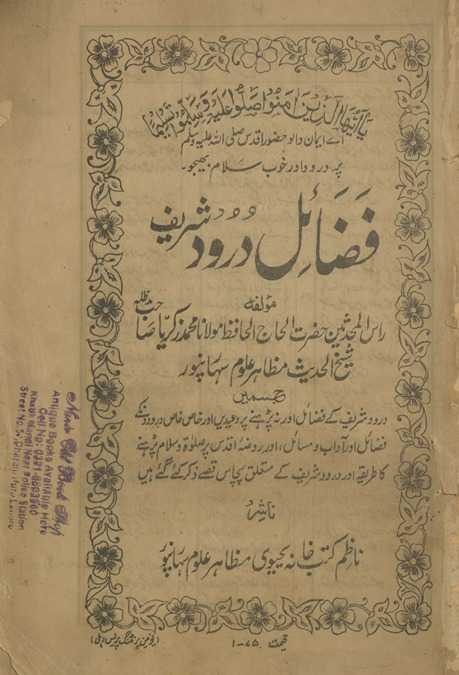 يٰٓاَيُّهَا الَّذِيْنَ اٰمَنُوْا صَلُّوْا عَلَيْهِ وَسَلِّمُوْا تَسْلِيْمًا
اے ایمان والو حضور اقدس صلی اللہ علیہ وسلم
پر درود اور خوب سلام بھیجو۔
فَضَائِل دُرُود شریف
مؤلفہ
راس المحدثین حضرت الحاج الحافظ مولانا محمد زکریا صاحب مدظلہ
شیخ الحدیث مظاہر علوم سہارنپور
جسمیں
درود شریف کے فضائل اور نہ پڑھنے پر وعیدیں اور خاص خاص درودونکے
فضائل اور آداب و مسائل، اور روضۂ اقدس پر صلوٰۃ و سلام پڑھنے
کا طریقہ اور درود شریف کے متعلق پچاس قصے ذکر کئے گئے ہیں
ناشر
ناظم کتب خانہ یحیوی مظاہر علوم سہارنپور
قیمت ۷۵-۱
(یونین پرنٹنگ پریس دہلی)
Old Book Shop
Antique Books Available Here
Cell No: 0321-
Near Police Station
Street No.